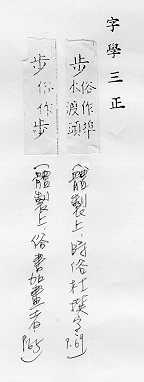 字學三正
步
俗作埠
水渡頭
(體製上、時俗杜撰字 P.69)
步 俗作步
(體製上、俗書加畫者 P.65)